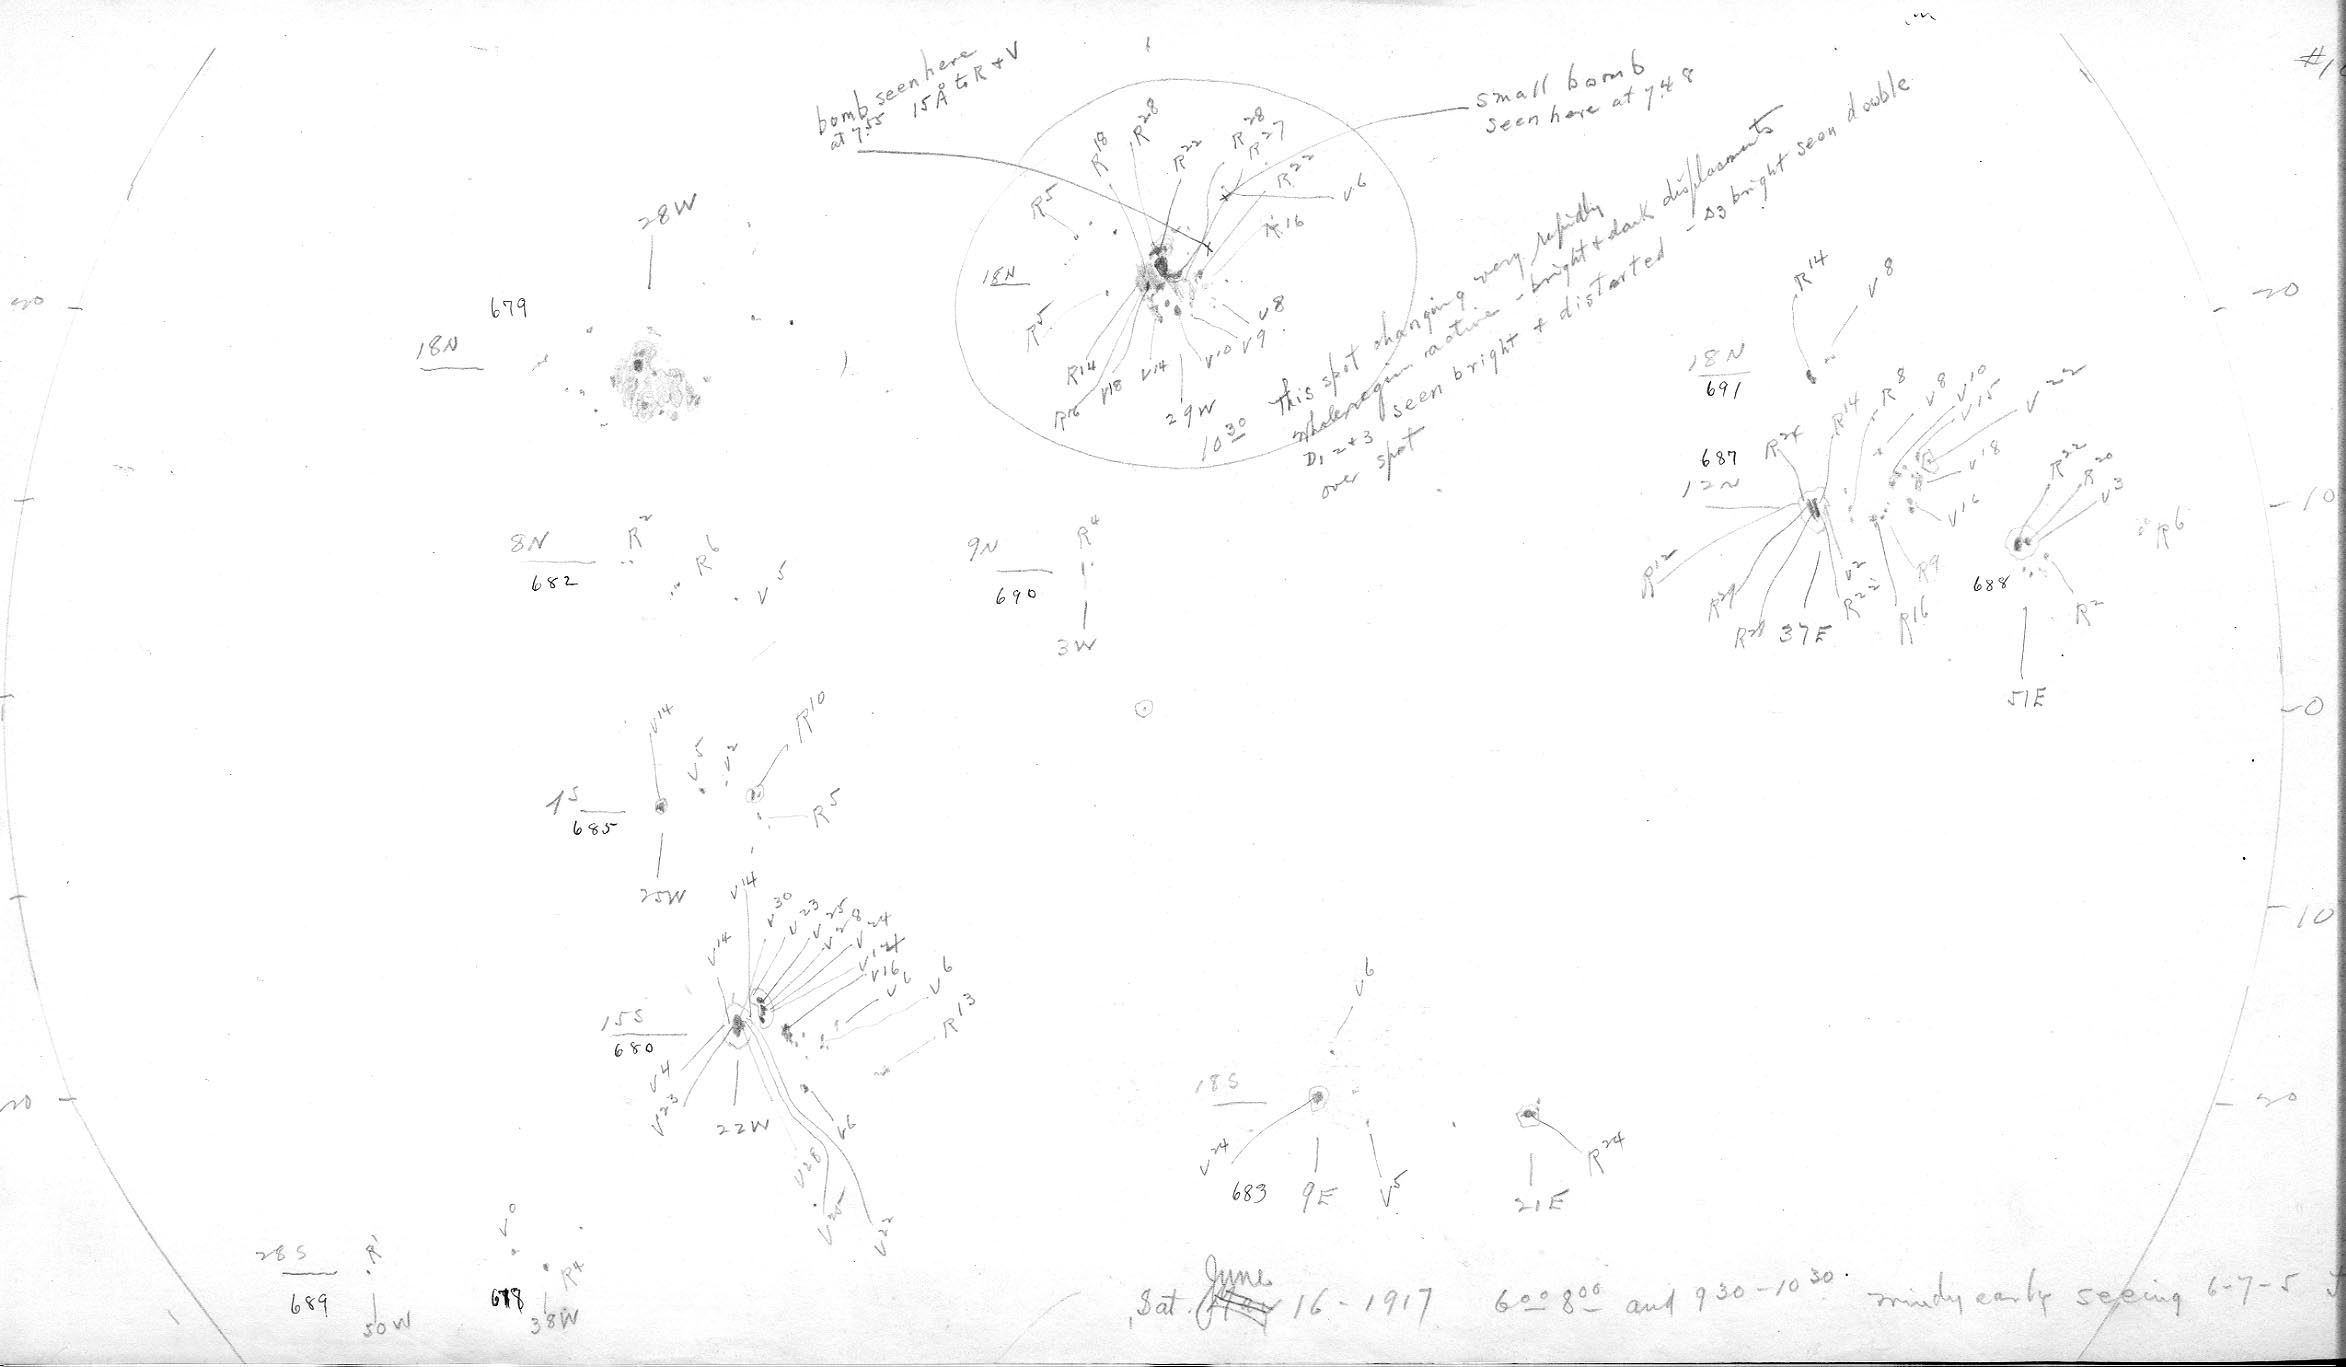 bomb seen here
at 7.55 15Å to R + V
small bomb
seen here at 7.48
28W
679
18N
R5
R18
R28
R22
R28
R27
R22
V6
R16
18N
R5
R14
R16
V18
V14
29W
V10
V9
V8
10 30 This spot changing very rapidly
whole region active - bright + dark displacements
D1 2 + 3 seen bright + distorted - D3 bright seen double
over spot
R14
V8
18N
691
687
12N
R24
R14
R8
V8
V10
V15
V22
V18
V16
R12
R29
37E
V2
R22
R16
R9
R22
R20
V3
R6
688
R2
51E
20
20
10
0
10
20
20
8N
682
R2
R6
V5
9N
690
R4
3W
V14
V5
V2
R10
4S
685
R5
25W
V14
V14
V30
V23
V25
V28
V24
V16
V6
V6
R13
15S
680
V4
V23
22W
V6
V28
V25
V22
18S
V6
V24
683
9E
V5
21E
R24
28S
689
R1
50W
V0
678
R4
38W
Sat. June 16 - 1917 6 00 8 00 and 9 30 - 10 30. windy early seeing 6-7-5